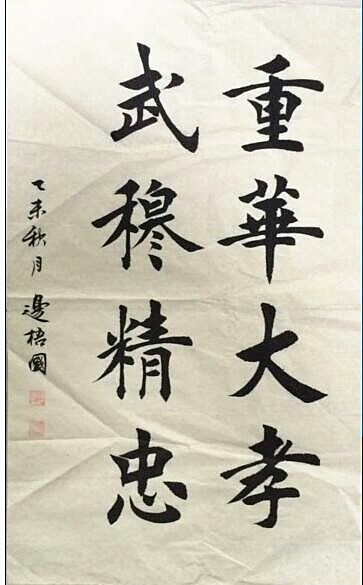 重華大孝
武穆精忠
乙未秋月 邊梧國